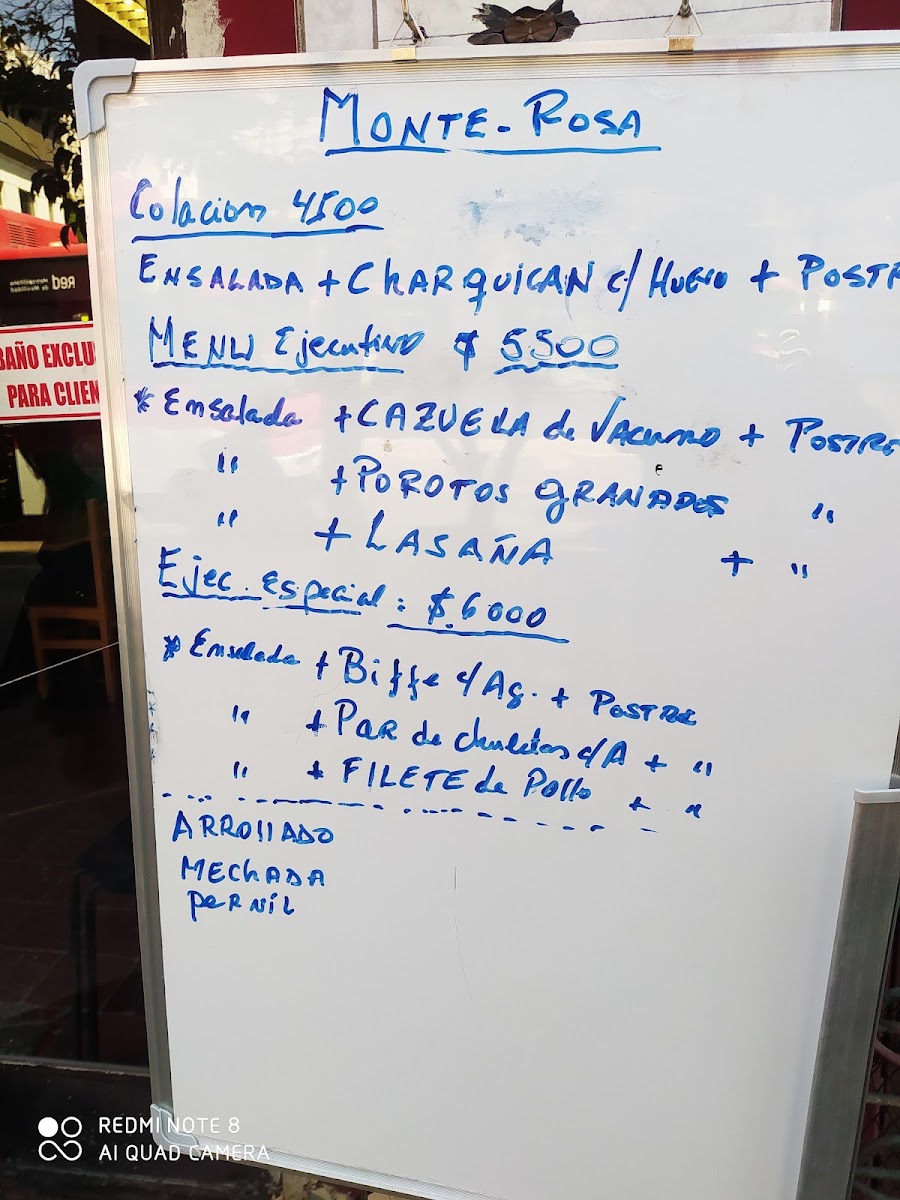 MONTE-ROSA
Colacion 4500
ENSALADA + CHARQUICAN c/ HUEVO + POSTR
MENU Ejecutivo $ 5500
* Ensalada + CAZUELA de VACUNO + POSTRE
" + POROTOS GRANADOS "
" + LASAÑA + "
Ejec. Especial : $.6000
* Ensalada + Biffe c/Ag. + POSTRE
" + PAR de chuletas c/A + "
" + FILETE de Pollo + "
ARROLLADO
MECHADA
PERNIL
BAÑO EXCLU
PARA CLIEN
Red
REDMI NOTE 8
AI QUAD CAMERA